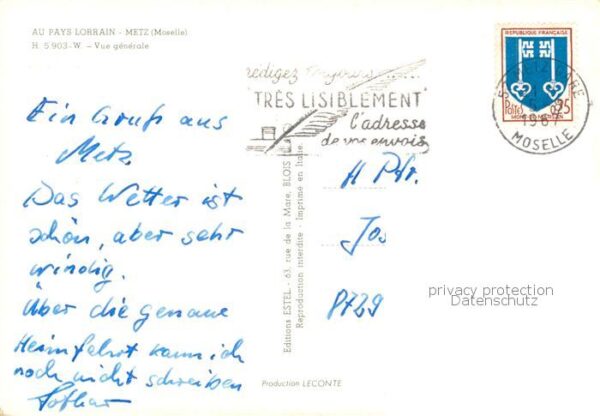 AU PAYS LORRAIN - METZ (Moselle)
H. 5.903-W. - Vue générale
Ein Gruß aus
Metz.
Das Wetter ist
schön, aber sehr
windig.
Über die genaue
Heimfahrt kann ich
noch nicht schreiben
Lothar
Editions ESTEL - 63, rue de la Mare, BLOIS
Reproduction interdite - Imprimé en Italie
redigez toujours
TRÈS LISIBLEMENT
l'adresse
de vos envois
REPUBLIQUE FRANÇAISE
0,25
METZ GARE
1967
MOSELLE
H Pfr.
Jos
8729
privacy protection
Datenschutz
Production LECONTE